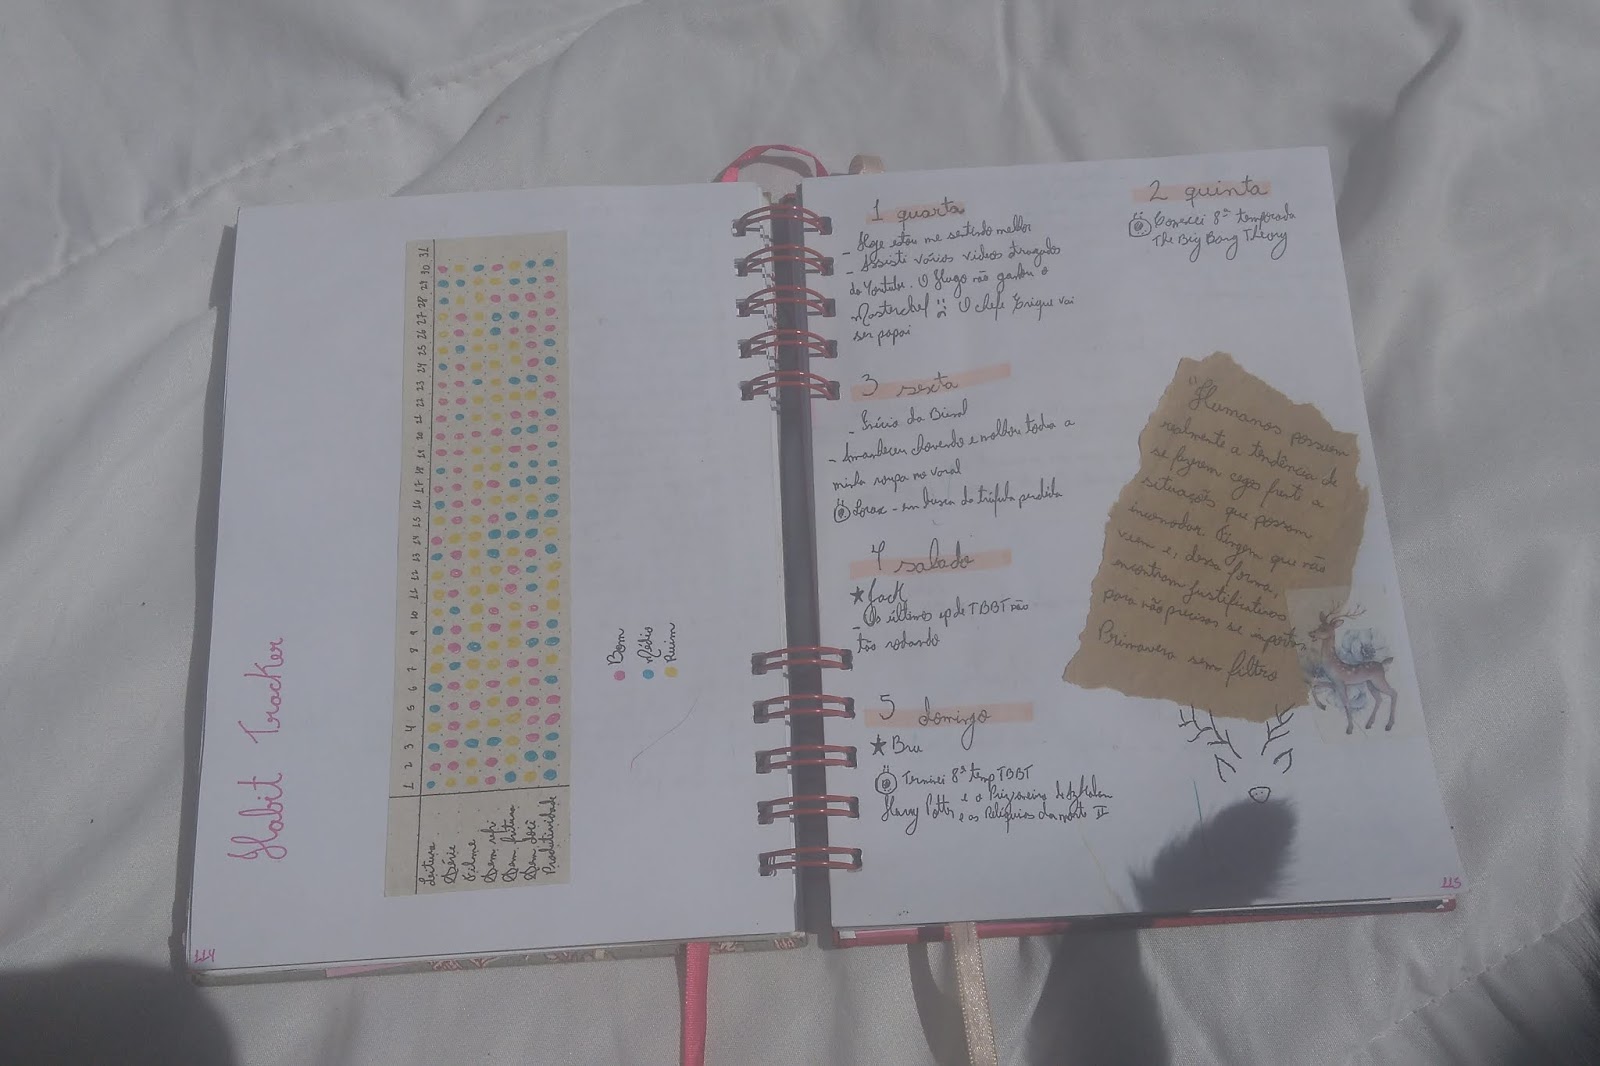 Habit Tracker
1 2 3 4 5 6 7 8 9 10 11 12 13 14 15 16 17 18 19 20 21 22 23 24 25 26 27 28 29 30 31
Leitura
Série
Filme
Sem refri
Sem fritura
Sem doce
Produtividade
Bom
Médio
Ruim
114
1 quarta
- Hoje estou me sentindo melhor
- Assisti vários videos atrasados
do Youtube. O Hugo não ganhou o
Masterchef :( O chefe Erique vai
ser papai
2 quinta
Comecei 8ª temporada
The Big Bang Theory
3 sexta
- Início da Bienal
- Amanheceu chovendo e molhou toda a
minha roupa no varal
Lorax - em busca da trúfula perdida
4 sabado
★ Jack
- Os últimos ep de TBBT não
tão rodando
5 domingo
★ Bru
Terminei 8ª temp TBBT
Harry Potter e o Prisioneiro de Azkaban
e as Relíquias da morte II
"Humanos possuem
realmente a tendência de
se fazerem cegos frente a
situações que possam
incomodar. Fingem que não
viram e, dessa forma,
encontram justificativas
para não precisar se importar
Primavera sem filtro
115